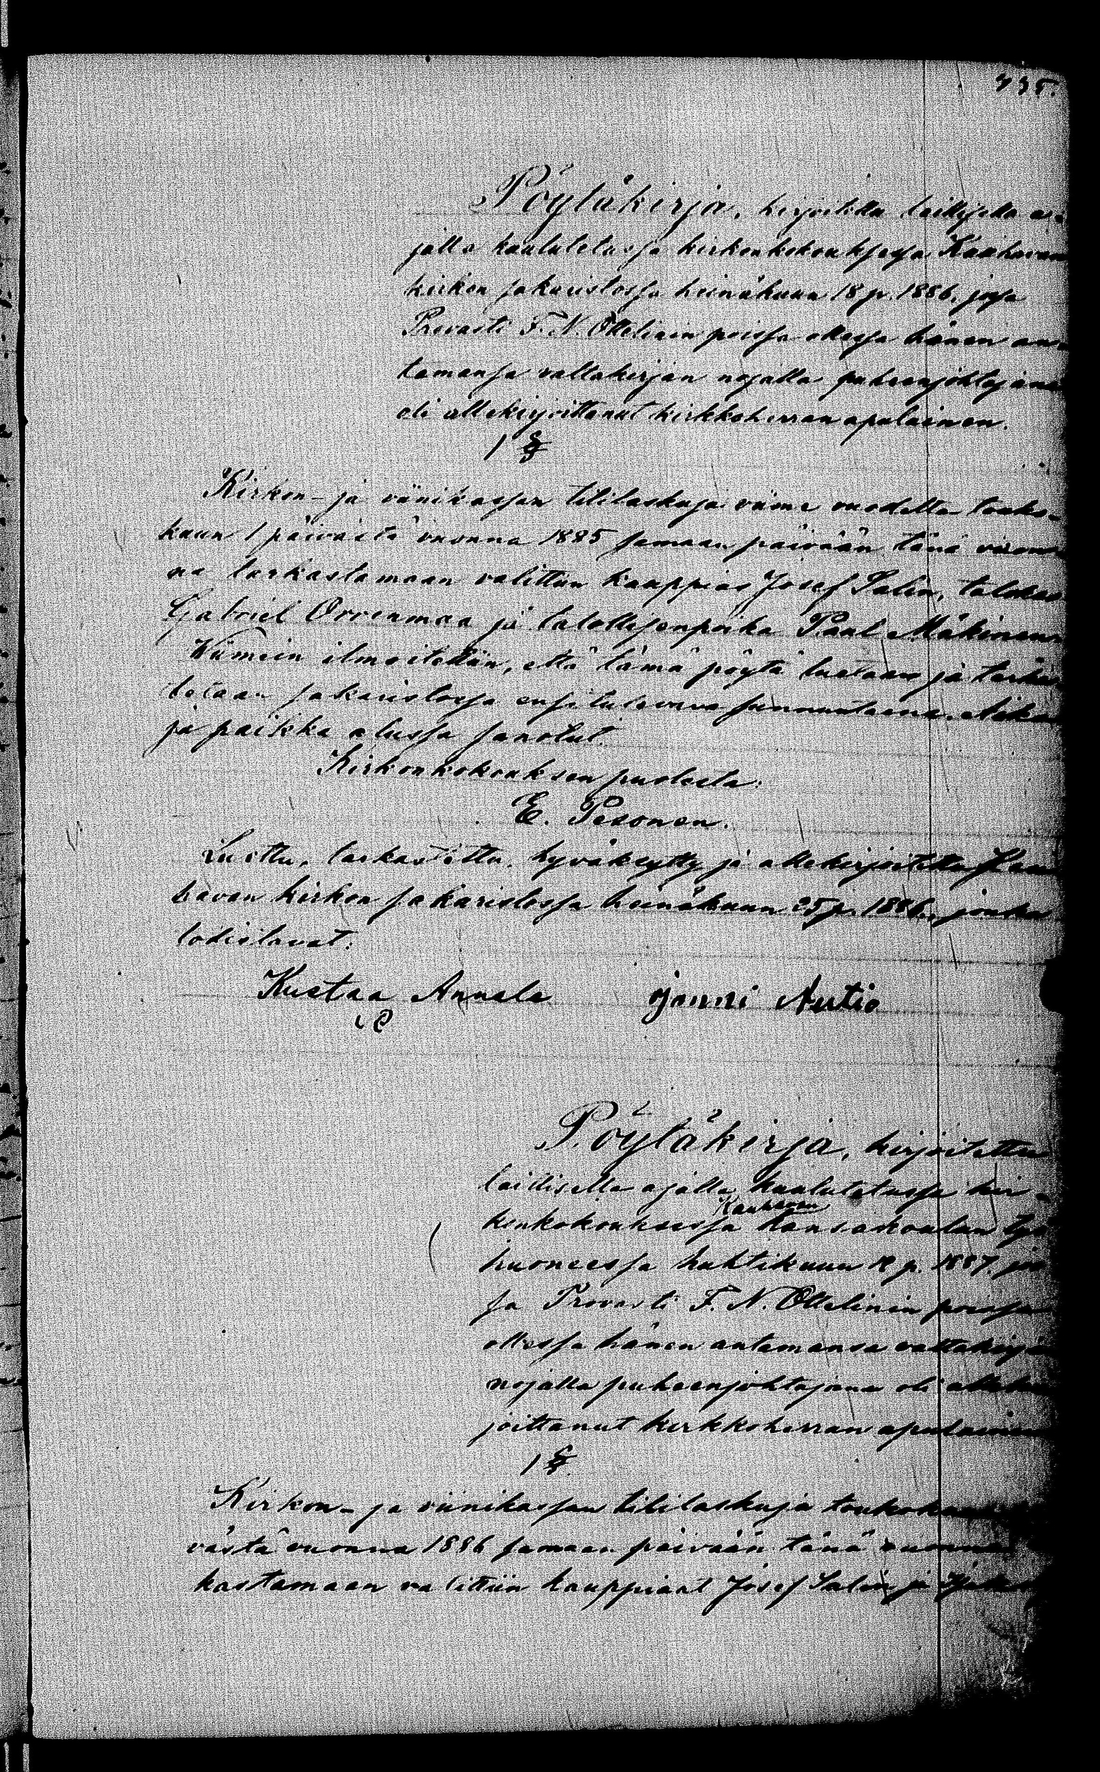 335.
Pöytäkirja, kirjoitettu laillisella ai-
jalla kuulutetussa kirkonkokouksessa Kauhavan
kirkon sakaristossa heinäkuun 18 p. 1886, jossa
Provasti F. N. Ottelinin poissa ollessa hänen an-
tamansa valtakirjan nojalla puheenjohtajana
oli allekirjoittanut kirkkoherran apulainen.
1 §
Kirkon- ja viinikassan tililaskuja viime vuodelta touko-
kuun 1 päivästä vuonna 1885 samaan päivään tänä vuon-
na tarkastamaan valittiin kauppias Josef Salin, talokas
Gabriel Orrenmaa ja talollisenpoika Paul Mäkinen
Viimein ilmoitettiin, että tämä pöytä luetaan ja tarkis-
tetaan sakaristossa ensi tulevana sunnuntaina. Aika
ja paikka alussa sanotut.
Kirkonkokouksen puolesta:
E. Pesonen.
Luettu, tarkastettu, hyväksytty ja allekirjoitettu Kau-
havan kirkon sakaristossa heinäkuun 25 p. 1886, jonka
todistavat:
Kustaa Annala janni Autio
Pöytäkirja, kirjoitettu
laillisella ajalla kuulutetussa kir-
konkokouksessa Kauhavan kansakoulun työ
huoneessa huhtikuun 18 p. 1887, jos-
sa Provasti F. N. Ottelinin poissa
ollessa hänen antamansa valtakirjan
nojalla puheenjohtajana oli allekir-
joittanut kirkkoherran apulainen
1 §.
Kirkon- ja viinikassan tililaskuja toukokuun
västä vuonna 1886 samaan päivään tänä vuonna
kastamaan valittiin kauppiaat Josef Salin ja